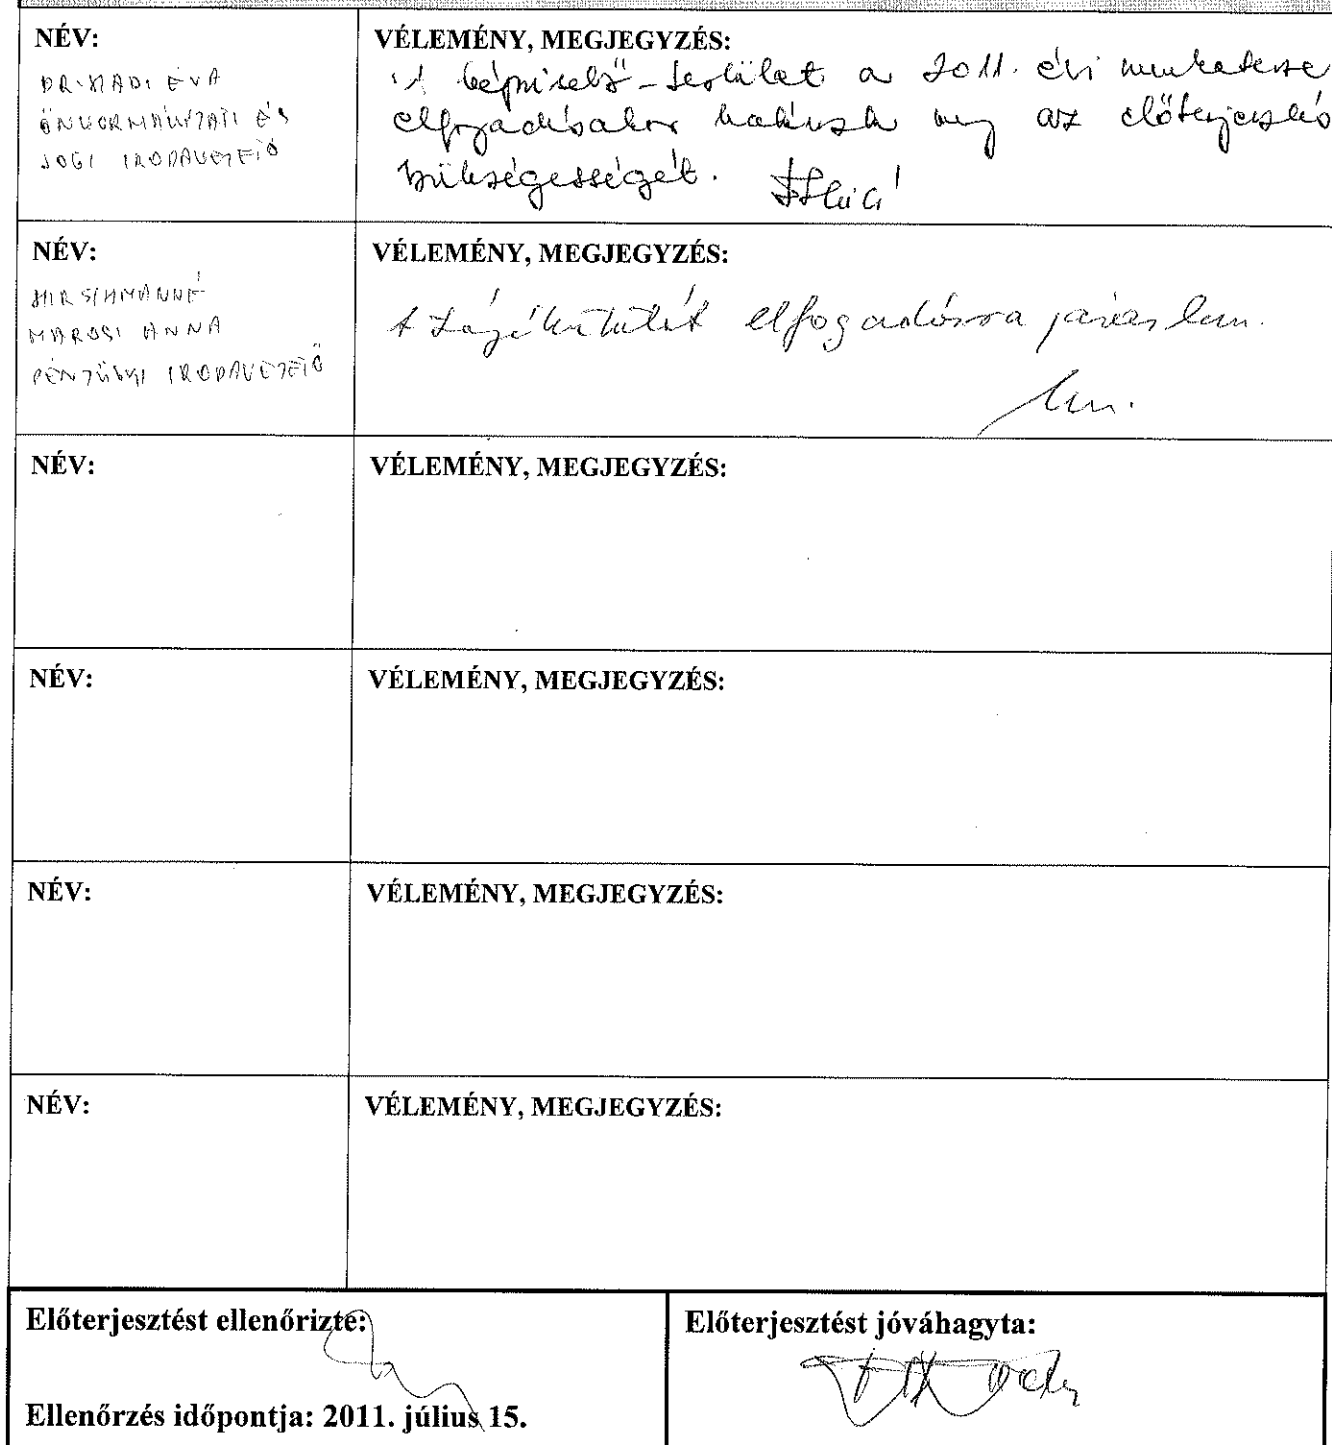 NÉV:
VÉLEMÉNY, MEGJEGYZÉS:
DR. MADI ÉVA
ÖNKORMÁNYZATI ÉS
JOGI IRODAVEZETŐ
A képviselő-testület a 2011. évi munkaterve
elfogadásakor határozta meg az előterjesztés
szükségességét.
NÉV:
VÉLEMÉNY, MEGJEGYZÉS:
HIRSCHMANNÉ
MAROSI ANNA
PÉNZÜGYI IRODAVEZETŐ
A tájékoztatót elfogadásra javaslom.
NÉV:
VÉLEMÉNY, MEGJEGYZÉS:
NÉV:
VÉLEMÉNY, MEGJEGYZÉS:
NÉV:
VÉLEMÉNY, MEGJEGYZÉS:
NÉV:
VÉLEMÉNY, MEGJEGYZÉS:
Előterjesztést ellenőrizte:
Ellenőrzés időpontja: 2011. július 15.
Előterjesztést jóváhagyta: